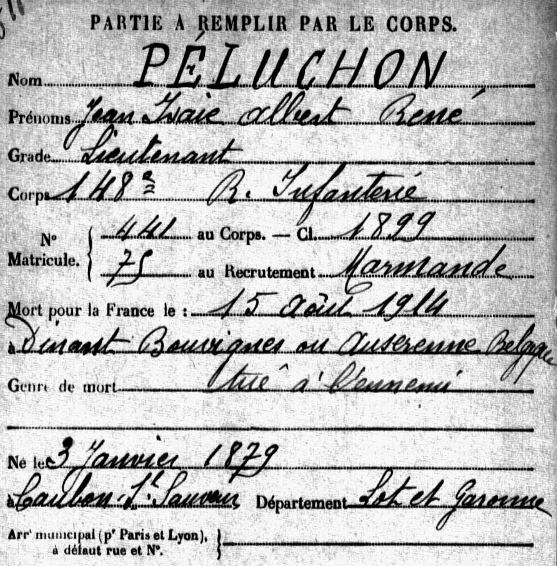 PARTIE À REMPLIR PAR LE CORPS.
Nom PÉLUCHON
Prénoms Jean Isaïe Albert René
Grade Lieutenant
Corps 148e R. Infanterie
N° Matricule. { 441 au Corps. — Cl. 1899
75 au Recrutement Marmande
Mort pour la France le : 15 août 1914
à Dinant Bouvignes ou Anseremme Belgique
Genre de mort tué à l'ennemi
Né le 3 Janvier 1879
à Caubon-St Sauveur Département Lot et Garonne
Arrt municipal (pr Paris et Lyon),
à défaut rue et N°.